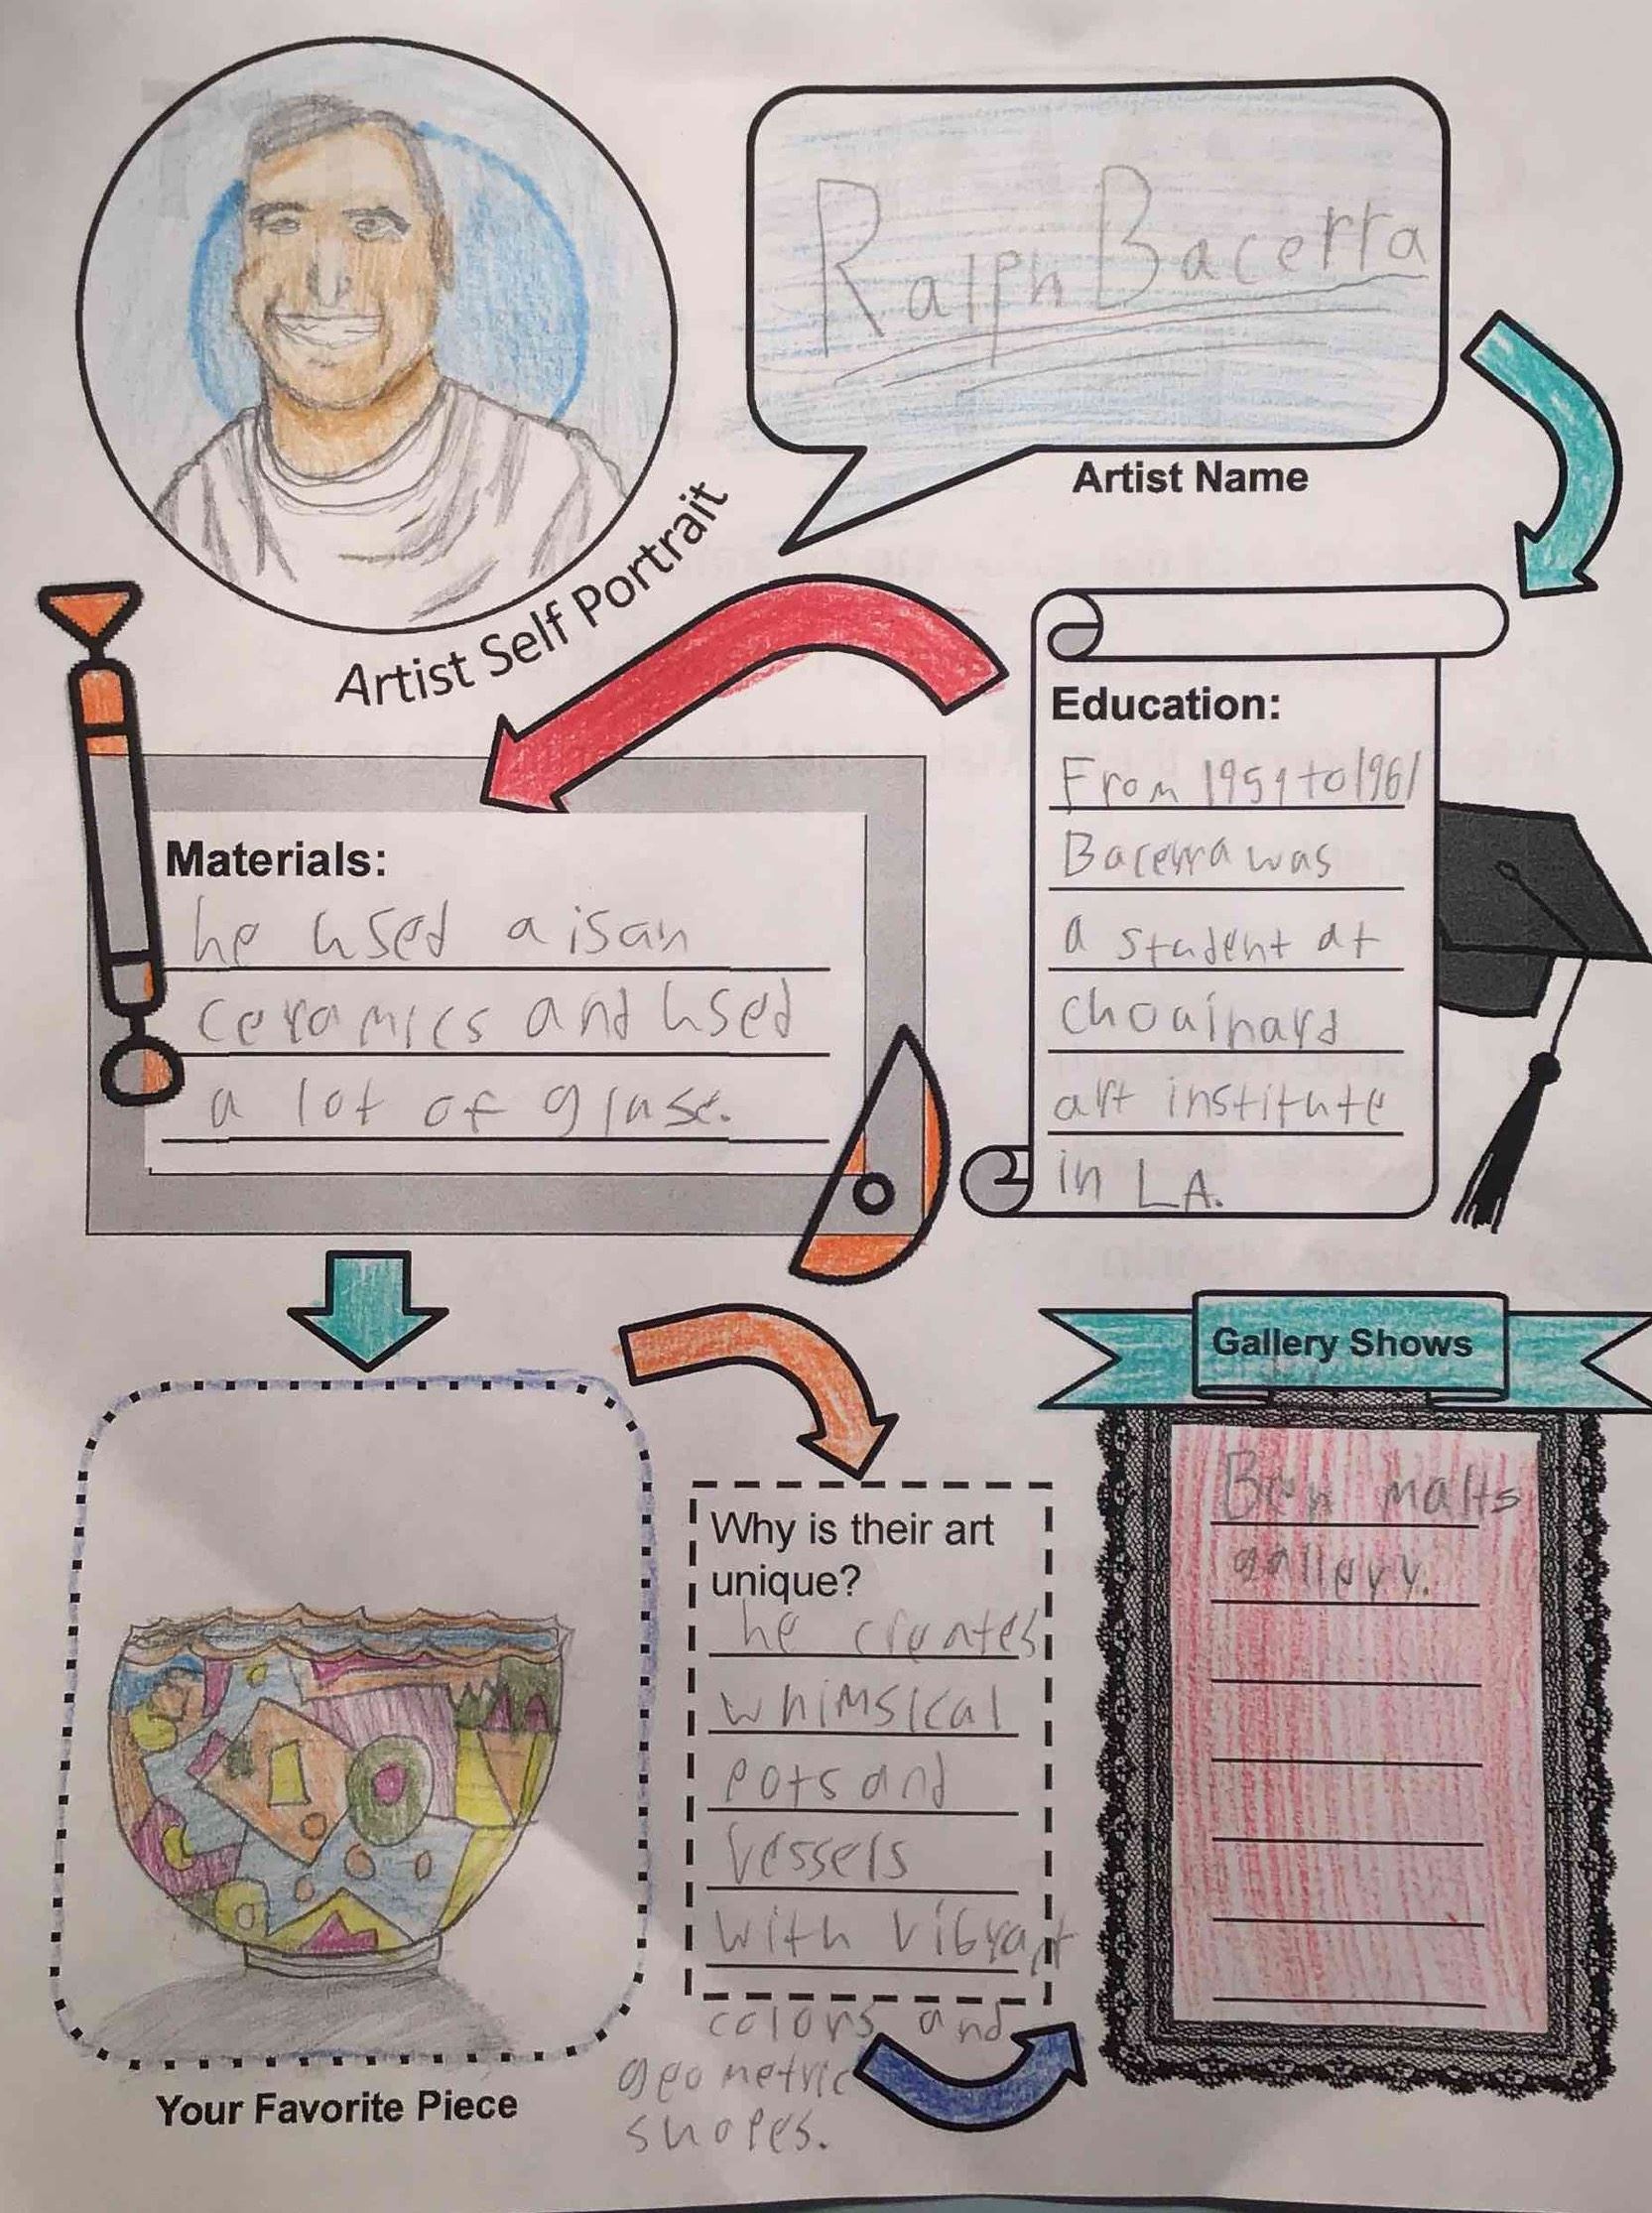 Ralph Bacerra
Artist Name
Artist Self Portrait
Education:
From 1959 to 1961
Bacerra was
a student at
chouinard
art institute
in LA.
Materials:
he used aisan
ceramics and used
a lot of glase.
Your Favorite Piece
Why is their art
unique?
he creates
whimsical
pots and
vessels
with vibrant
colors and
geometric
shapes.
Gallery Shows
Ben malts
gallery.